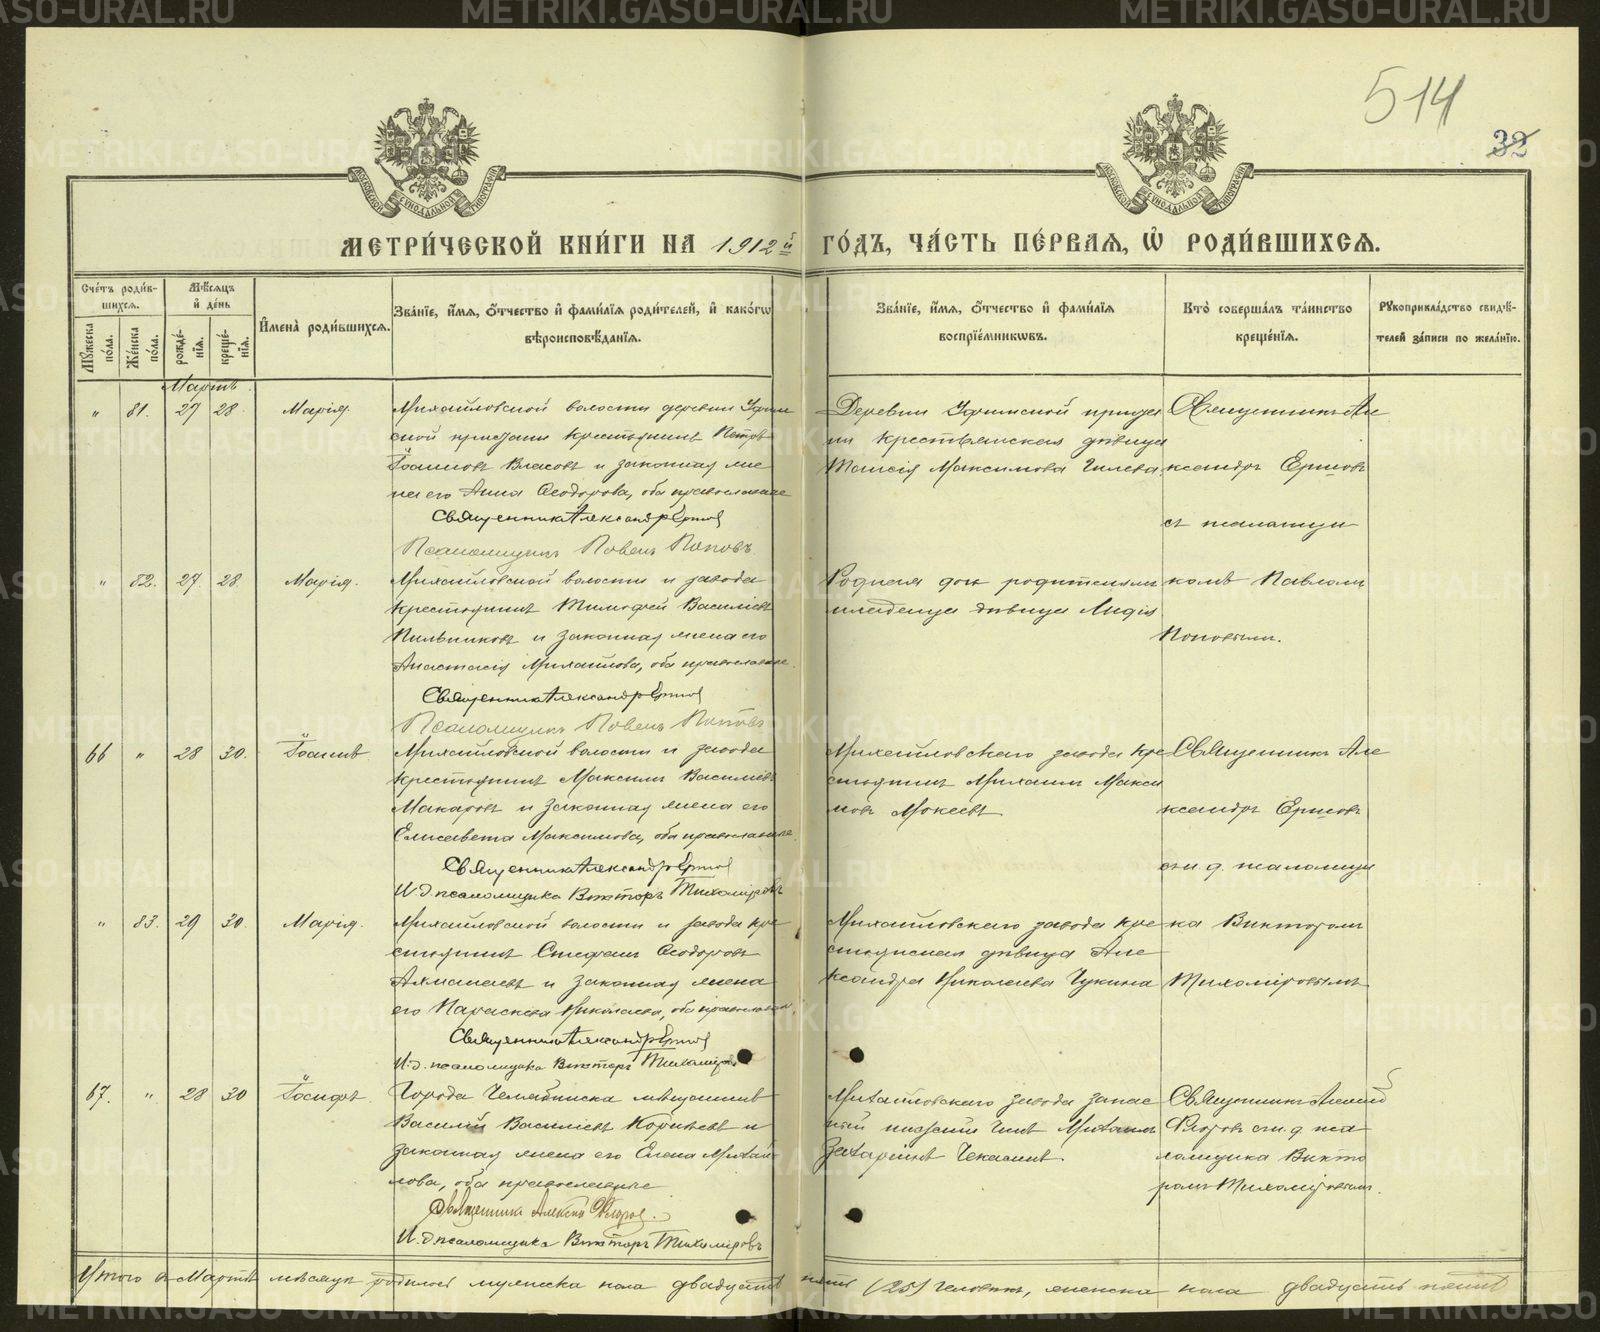 514
32
МОСКОВСКОЙ СѴНОДАЛЬНОЙ ТИПОГРАФІИ
МОСКОВСКОЙ СѴНОДАЛЬНОЙ ТИПОГРАФІИ
МЕТРИ́ЧЕСКОЙ КНИ́ГИ НА 1912й ГО́ДЪ, ЧА́СТЬ ПЕ́РВАЯ, Ѡ҆ РОДИ́ВШИХСЯ.
Сче́тъ роди́вшихся.
Мѣ́сяцъ и҆ де́нь
Мꙋ́жеска по́ла.
Же́нска по́ла.
рожде́нїя.
креще́нїя.
И҆мена̀ роди́вшихся.
Зва́нїе, и҆́мя, о҆́тчество и҆ фами́лїя роди́телей, и҆ како́гѡ
вѣроисповѣ́данїя.
Зва́нїе, и҆́мя, о҆́тчество и҆ фами́лїя
воспрїе́мникѡвъ.
Кто̀ соверша́лъ та́инство
креще́нїя.
Рꙋкоприкла́дство свидѣ́-
телей за́писи по жела́нїю.
Мартъ
" 81. 27 28 Марія.
Михайловской волости деревни Уфим
ской пристани крестьянинъ Петръ
Іоанновъ Власовъ и законная же
на его Анна Ѳеодорова, оба православные
Священникъ Александръ Ершовъ
Псаломщикъ Павелъ Поповъ
Деревни Уфимской приста
ни крестьянская дѣвица
Таисія Максимова Чилева
Священникъ Але
ксандръ Ершовъ
съ псаломщи
" 82. 27 28 Марія.
Михайловской волости и завода
крестьянинъ Тимофей Василіевъ
Пильниковъ и законная жена его
Анастасія Михайлова, оба православные.
Священникъ Александръ Ершовъ
Псаломщикъ Павелъ Поповъ
Родная дочь родителямъ
младенца дѣвица Лидія
комъ Павломъ
Поповымъ.
66 " 28 30. Іоаннъ
Михайловской волости и завода
крестьянинъ Максимъ Василіевъ
Макаровъ и законная жена его
Елисавета Максимова, оба православные
Священникъ Александръ Ершовъ
И. д. псаломщика Викторъ Тихоміровъ
Михайловскаго завода кре
стьянинъ Михаилъ Макси
мовъ Мокеевъ
Священникъ Але
ксандръ Ершовъ
съ и. д. псаломщи
" 83. 29 30. Марія.
Михайловской волости и завода кре
стьянинъ Стефанъ Ѳеодоровъ
и законная жена
его Параскева Николаева, оба православн.
Священникъ Александръ Ершовъ
И. д. псаломщика Викторъ Тихоміровъ
Михайловскаго завода кре
стьянская дѣвица Але
ксандра Николаева Чукина
ка Викторомъ
Тихоміровымъ
67. " 28 30 Іосифъ.
Города Челябинска мѣщанинъ
Василій Василіевъ и
законная жена его Елена Михай
лова, оба православные
Священникъ Алексій Флоровъ.
И. д. псаломщика Викторъ Тихоміровъ
Михайловскаго завода запас
ный низшій чинъ Михаилъ
Захаріинъ Чекасинъ.
Священникъ Алексій
Флоровъ съ и. д. пса
ломщика Викто
ромъ Тихоміровымъ.
Итого въ Мартѣ мѣсяцѣ родилось мужеска пола двадцать пять (25) человѣкъ, женска пола двадцать пять